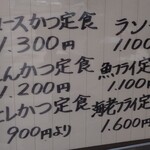 ースかつ定食
1.300円
んかつ定食
1.200円
ヒレかつ定食
900円より
ラン
1.100
魚フライ定
1.100円
海老フライ定
1.600円